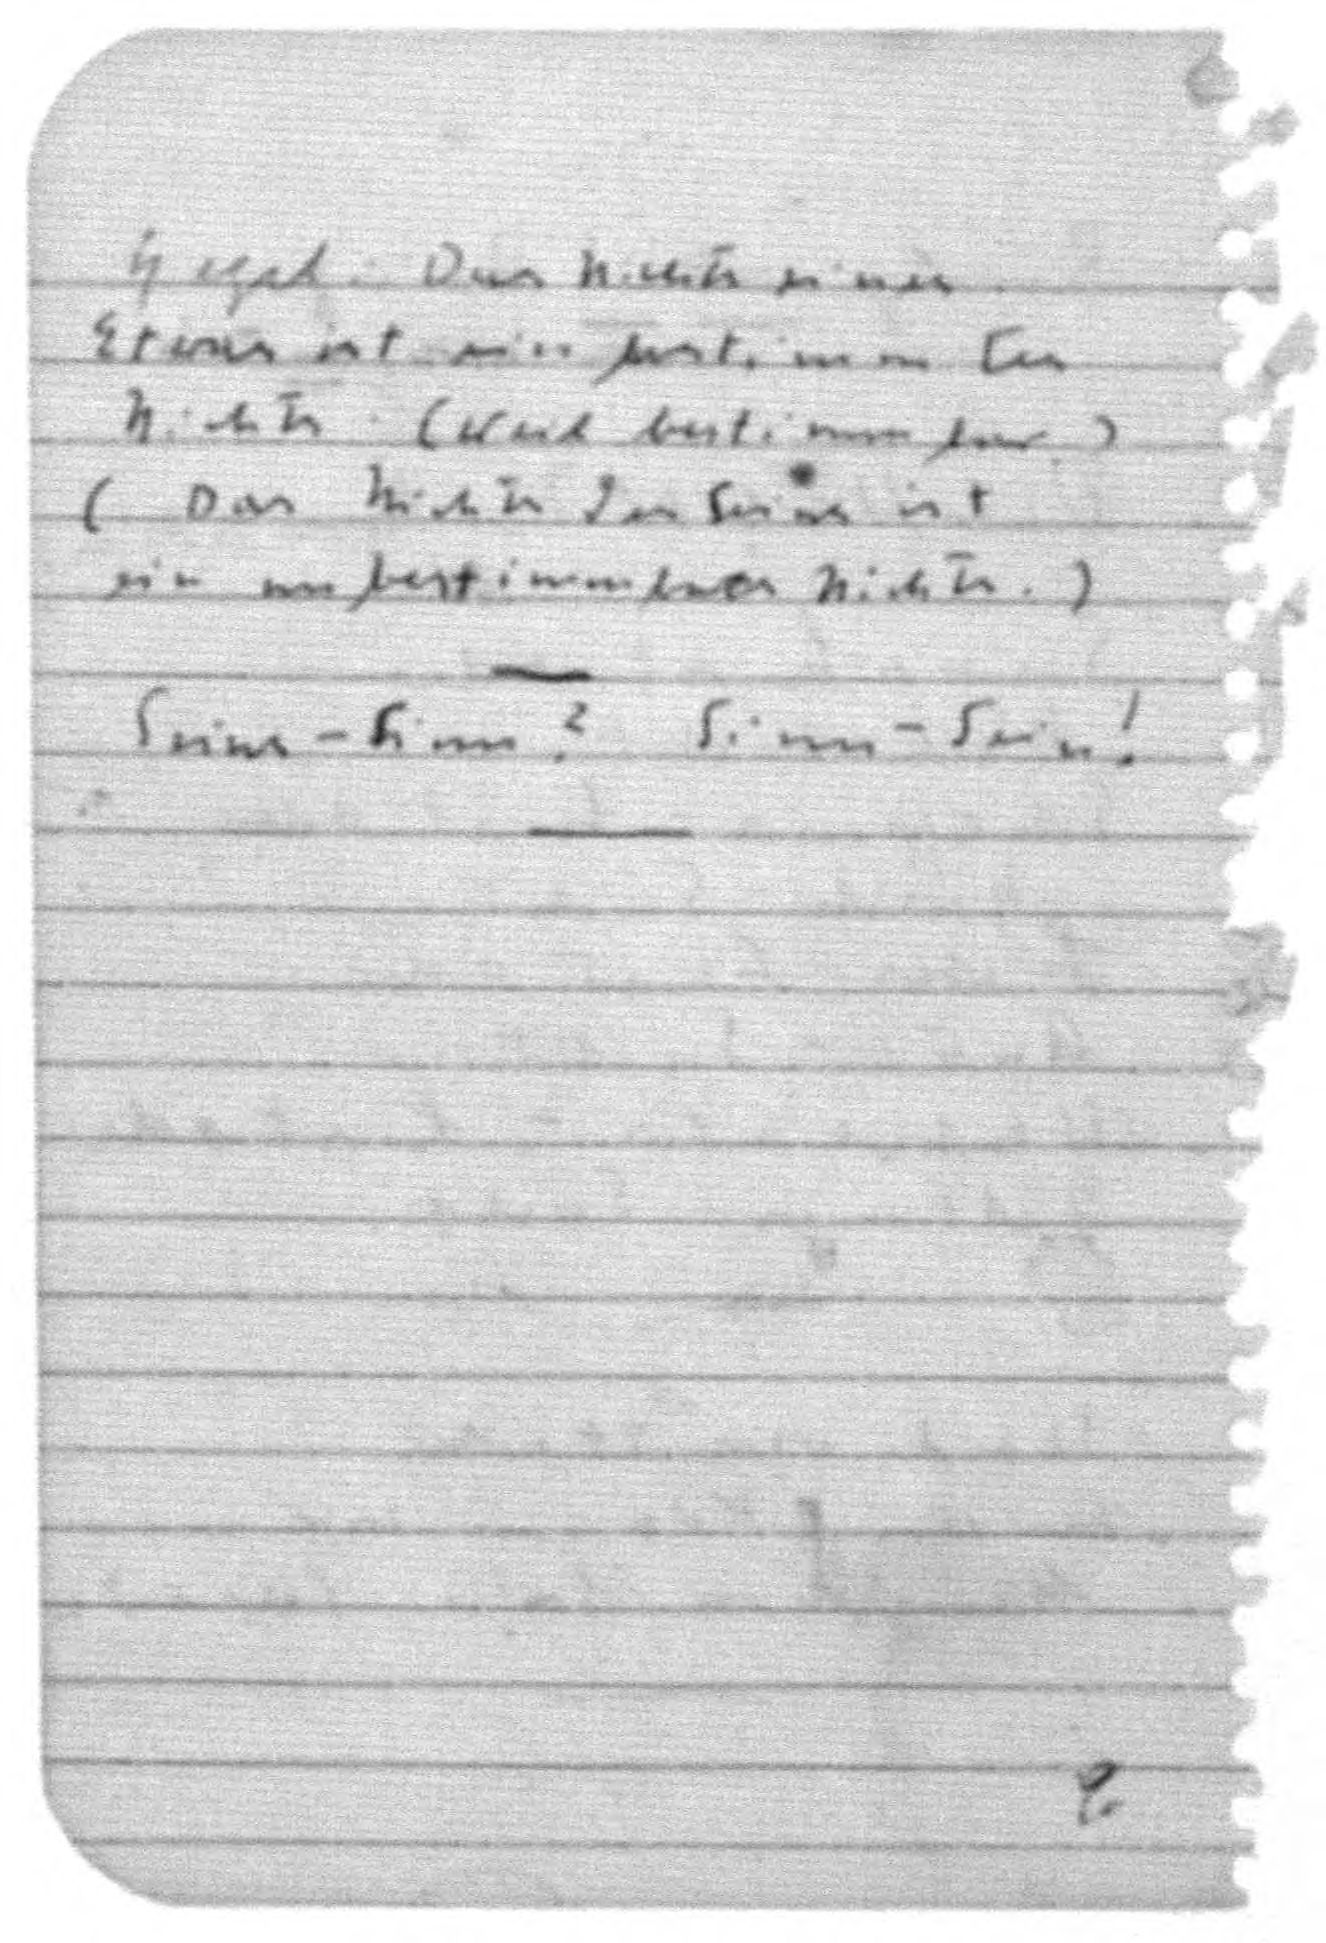 Hegel: Das Nichts eines
Etwas ist ein bestimmtes
Nichts. (Weil bestimmbar.)
(Das Nichts des Seins ist
ein unbestimmbares Nichts.)
Seins-Sinn? Sinn-Sein!